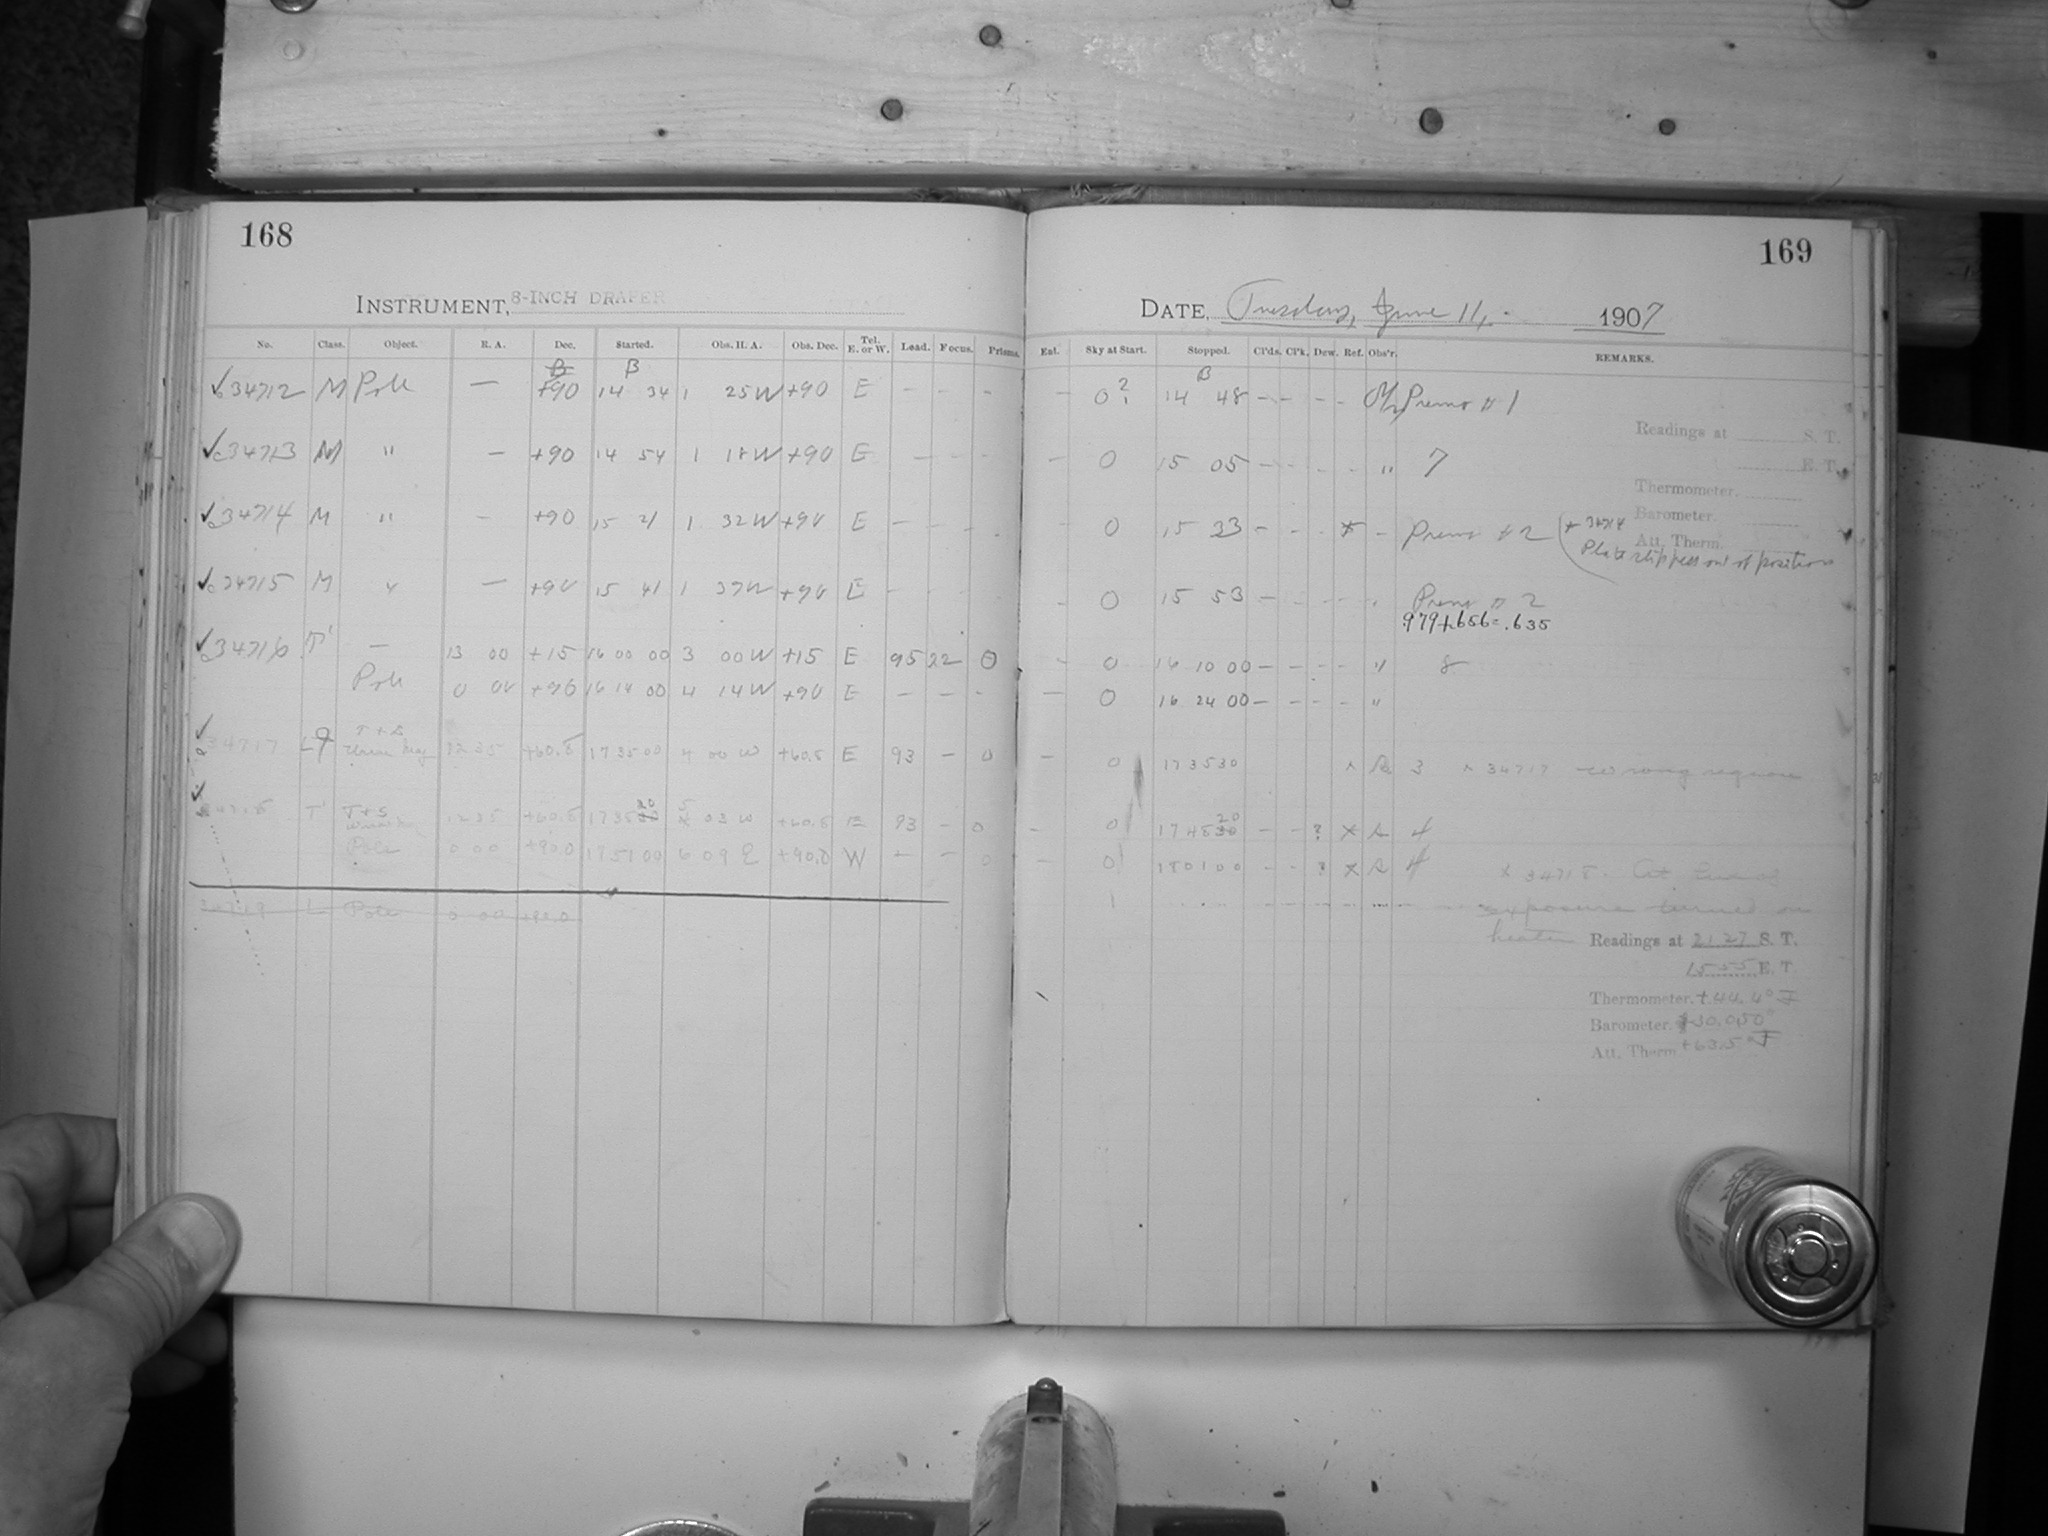 168
INSTRUMENT, 8-INCH DRAPER
No. Class. Object. R. A. Dec. Started. Obs. H. A. Obs. Dec. Tel. E. or W. Lead. Focus. Prisms.
B B
34712 M Pole — +90 14 34 1 25W +90 E — — —
34713 M " — +90 14 54 1 18W +90 E — — —
34714 M " — +90 15 21 1 32W +90 E — — —
34715 M " — +90 15 41 1 37W +90 E — — —
34716 T' — 13 00 +15 16 00 00 3 00W +15 E 95 22 0
Pole 0 00 +90 16 14 00 4 14W +90 E — — —
T+S
34717 +60.5 17 35 00 4 00 W +60.5 E 93 — 0
20 5
T' T+S 12 35 +60.5 17 35 30 03 W +60.5 E 93 — 0
Pole 0 00 +90.0 17 51 00 6 09 E +90.0 W — — 0
34719 L Pole 0 00 +90.0
169
DATE, Tuesday, June 11, 1907
Ent. Sky at Start. Stopped. Cl'ds. Cl'k. Dew. Ref. Obs'r. REMARKS.
B
— 0 2 1 14 48 — — — — 1
Readings at S. T.
— 0 15 05 — — — — " 7
E. T.
Thermometer.
Barometer.
— 0 15 33 — — — * — 2 * 34714
Att. Therm.
Plate slipped out of position
— 0 15 53 — — — — " 2
.979+.656=.635
— 0 16 10 00 — — — — " 8
— 0 16 24 00 — — — — "
— 0 17 35 30 3 34717 wrong region
20
— 0 17 45 30 — — ? x 4
— 0 18 01 00 — — ? x 4 x 34718. At time of
1 exposure turned on
heater Readings at 21 27 S. T.
15 55 E. T.
Thermometer. +44.4° F
Barometer. 30.050
Att. Therm +63.5° F